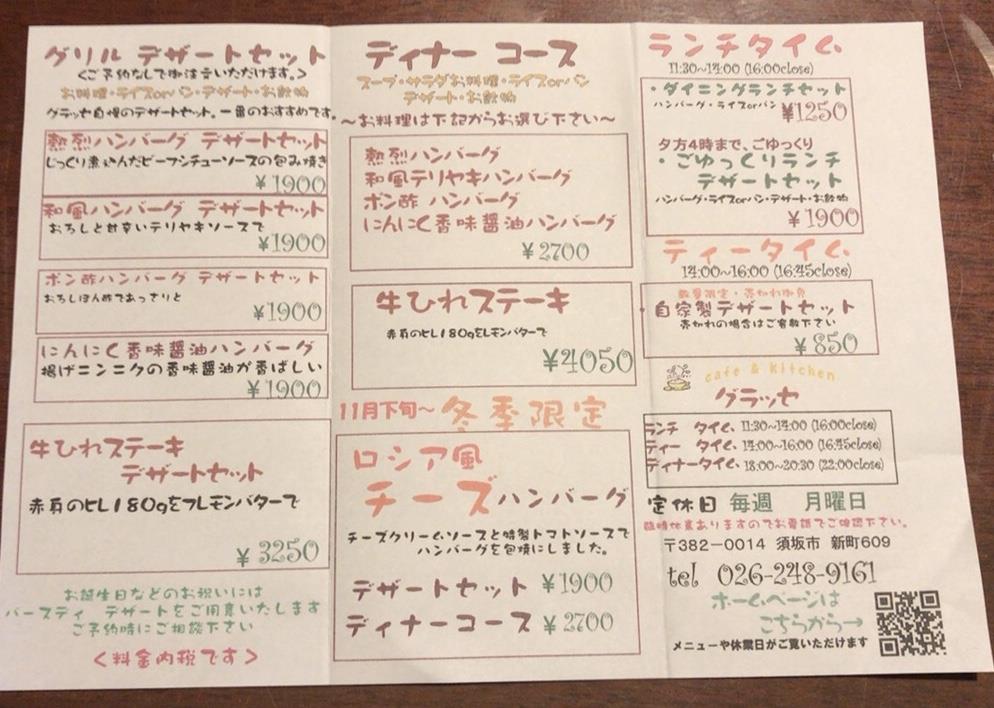 グリル デザートセット
<ご予約なしで御注文いただけます。>
お料理・ライスorパン・デザート・お飲物
グラッセ自慢のデザートセット。一番のおすすめです。
熱烈ハンバーグ デザートセット
じっくり煮込んだビーフシチューソースの包み焼き
¥1900
和風ハンバーグ デザートセット
おろしと甘辛いテリヤキソースで
¥1900
ポン酢ハンバーグ デザートセット
おろしぽん酢であっさりと
¥1900
にんにく香味醤油ハンバーグ
揚げニンニクの香味醤油が香ばしい
¥1900
牛ひれステーキ
デザートセット
赤身のヒレ180gをフレモンバターで
¥3250
お誕生日などのお祝いには
バースティ デザートをご用意いたします
ご予約時にご相談下さい
<料金内税です>
ディナー コース
スープ・サラダお料理・ライスorパン
デザート・お飲物
〜お料理は下記からお選び下さい〜
熱烈ハンバーグ
和風テリヤキハンバーグ
ポン酢 ハンバーグ
にんにく香味醤油ハンバーグ
¥2700
牛ひれステーキ
赤身のヒレ180gをレモンバターで
¥4050
11月下旬〜 冬季限定
ロシア風
チーズハンバーグ
チーズクリームソースと特製トマトソースで
ハンバーグを包焼にしました。
デザートセット ¥1900
ディナーコース ¥2700
ランチタイム
11:30~14:00 (16:00close)
・ダイニングランチセット
ハンバーグ・ライスorパン ¥1250
夕方4時まで、ごゆっくり
・ごゆっくりランチ
デザートセット
ハンバーグ・ライスorパン・デザート・お飲物
¥1900
ティータイム
14:00~16:00 (16:45close)
数量限定・売切れ御免
・自家製デザートセット
売切れの場合はご容赦下さい
¥850
cafe & Kitchen
グラッセ
ランチ タイム 11:30~14:00 (16:00close)
ティー タイム 14:00~16:00 (16:45close)
ディナータイム 18:00~20:30 (22:00close)
定休日 毎週 月曜日
臨時休業ありますのでお電話でご確認下さい。
〒382-0014 須坂市 新町609
tel 026-248-9161
ホームページは
こちらから→
メニューや休業日がご覧いただけます